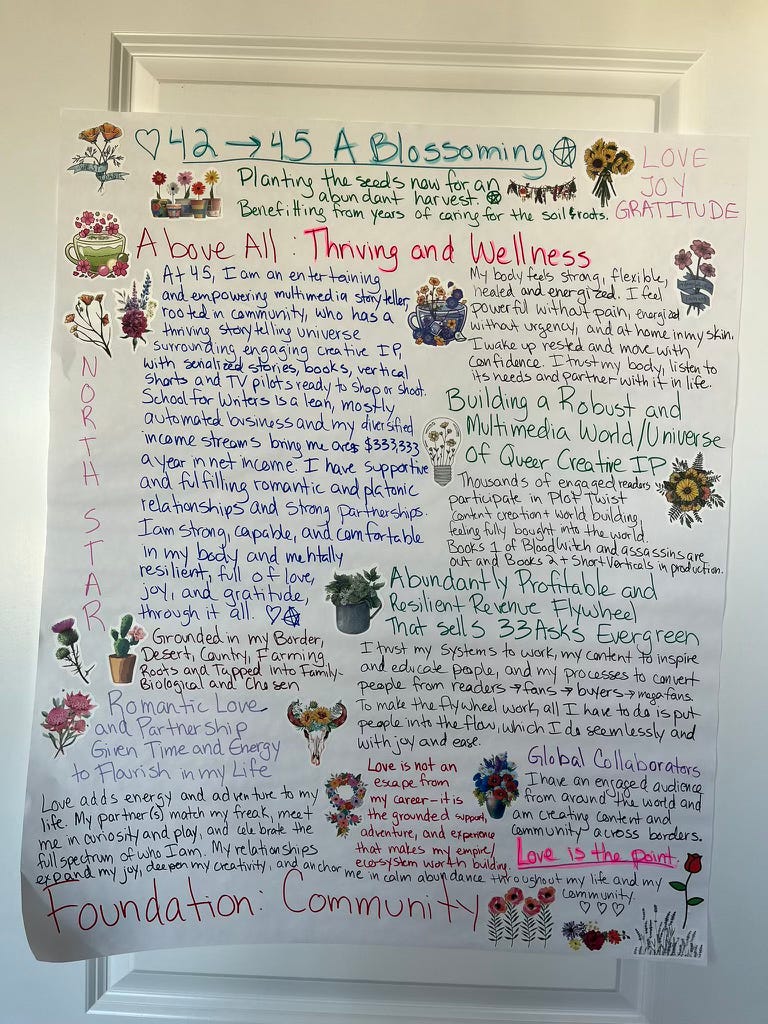 ♡ 42 → 45 A Blossoming
Planting the seeds now for an
abundant harvest.
Benefitting from years of caring for the soil & roots.
LOVE
JOY
GRATITUDE
Above All: Thriving and Wellness
NORTH STAR
At 45, I am an entertaining
and empowering multimedia storyteller
rooted in community, who has a
thriving storytelling universe
surrounding engaging creative IP,
with serialized stories, books, vertical
shorts and TV pilots ready to shop or shoot.
School for Writers is a lean, mostly
automated business and my diversified
income streams bring me $333,333
a year in net income. I have supportive
and fulfilling romantic and platonic
relationships and strong partnerships.
I am strong, capable, and comfortable
in my body and mentally
resilient, full of love,
joy, and gratitude,
through it all. ♡
My body feels strong, flexible,
healed and energized. I feel
powerful without pain, energized
without urgency, and at home in my skin.
I wake up rested and move with
confidence. I trust my body, listen to
its needs and partner with it in life.
Building a Robust and
Multimedia World/Universe
of Queer Creative IP
Thousands of engaged readers
participate in Plot Twist
content creation & world building,
feeling fully bought into the world.
Books 1 of Bloodwitch and assassins are
out and Books 2 + Short Verticals in production.
Abundantly Profitable and
Resilient Revenue Flywheel
That sells 33 Asks Evergreen
I trust my systems to work, my content to inspire
and educate people, and my processes to convert
people from readers → fans → buyers → mega fans.
To make the flywheel work, all I have to do is put
people into the flow, which I do seemlessly and
with joy and ease.
Grounded in my Border,
Desert, Country, Farming
Roots and Tapped into Family-
Biological and Chosen
Romantic Love
and Partnership
Given Time and Energy
to Flourish in my Life
Love adds energy and adventure to my
life. My partner(s) match my freak, meet
me in curiosity and play, and celebrate the
full spectrum of who I am. My relationships
expand my joy, deepen my creativity, and anchor me in calm abundance throughout my life and my
community.
♡ ♡ ♡
Love is not an
escape from
my career - it is
the grounded support,
adventure, and experience
that makes my empire/
ecosystem worth building.
Global Collaborators
I have an engaged audience
from around the world and
am creating content and
community across borders.
Love is the point.
Foundation: Community